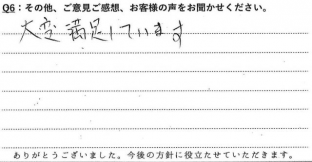 Q6：その他、ご意見ご感想、お客様の声をお聞かせください。
大変満足しています
ありがとうございました。今後の方針に役立たせていただきます。